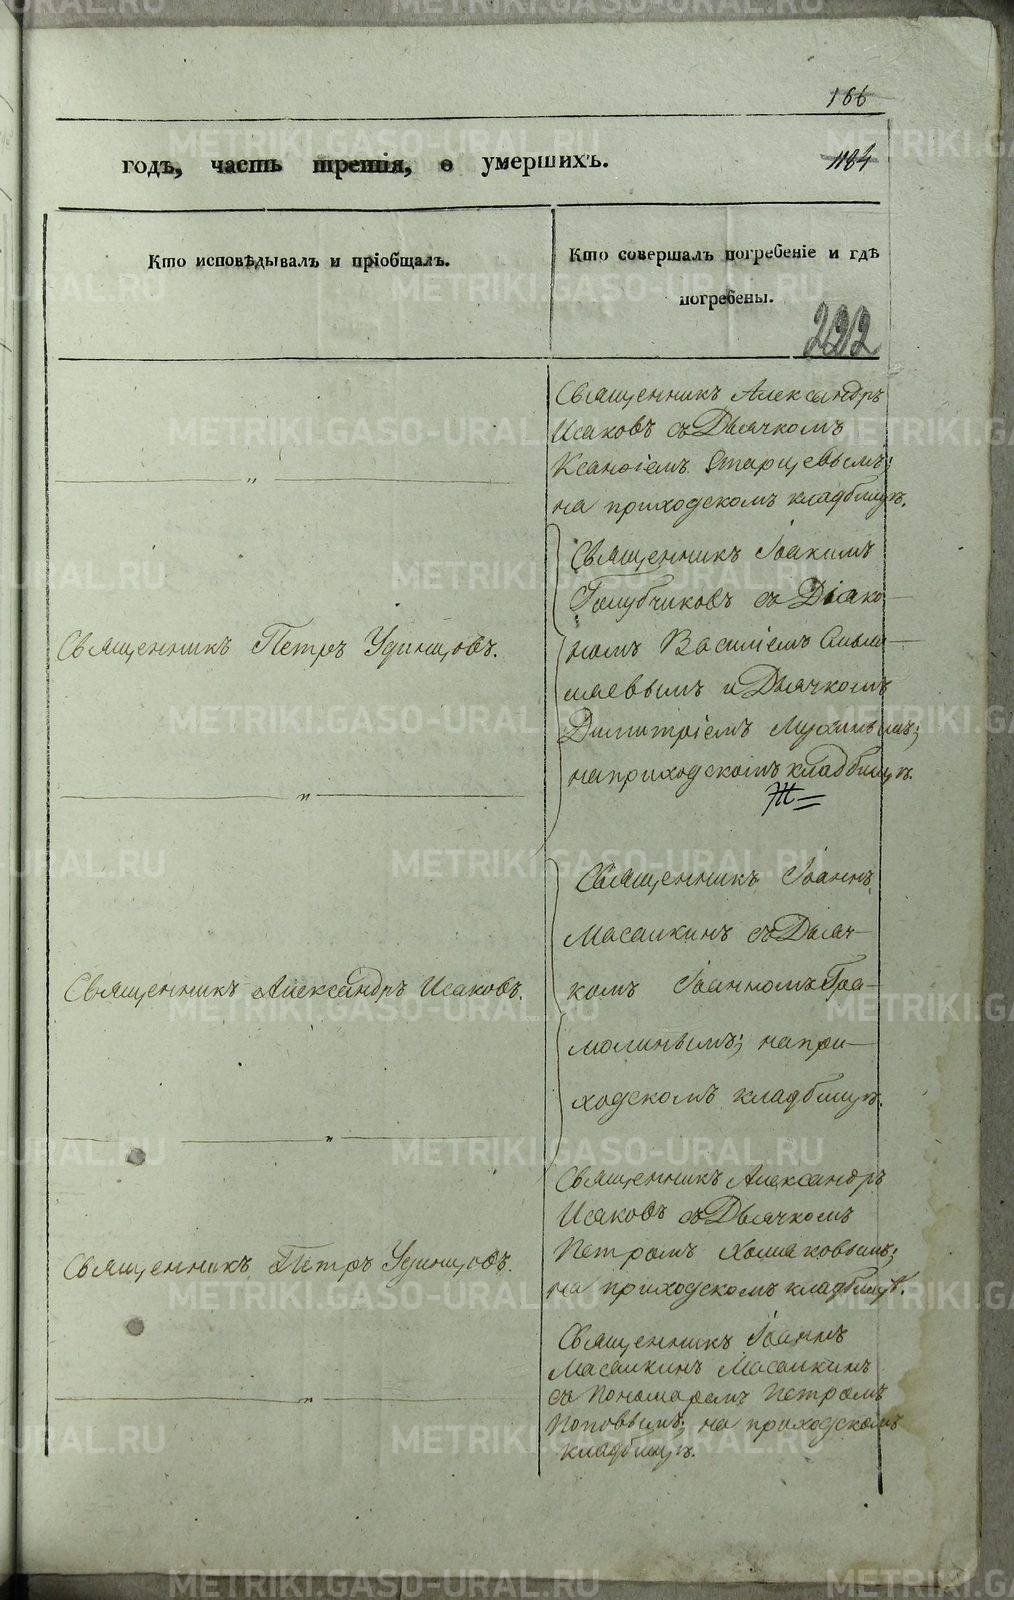 166
годъ, часть третія, о умершихъ.
1184
Кто исповѣдывалъ и пріобщалъ.
Кто совершалъ погребеніе и гдѣ
погребены.
222
Священникъ Александръ
Исаковъ съ Дьячкомъ
Ксанѳіемъ Старцевымъ;
на приходскомъ кладбищѣ.
"
Священникъ Іоакимъ
Голубчиковъ съ Діако-
Священникъ Петръ Удинцовъ.
номъ Василіемъ
и Дьячкомъ
Димитріемъ Мухинымъ;
на приходскомъ кладбищѣ.
"
Священникъ Іоаннъ
Масалкинъ съ Дьяч-
Священникъ Александръ Исаковъ.
комъ Іоанномъ Гра-
молинымъ; на при-
ходскомъ кладбищѣ.
"
Священникъ Александръ
Исаковъ съ Дьячкомъ
Священникъ Петръ Удинцовъ.
Петромъ Хомяковымъ;
на приходскомъ кладбищѣ.
Священникъ Іоаннъ
Масалкинъ Масалкинъ
"
съ Пономаремъ Петромъ
Поповымъ; на приходскомъ
кладбищѣ.
METRIKI.GASO-URAL.RU